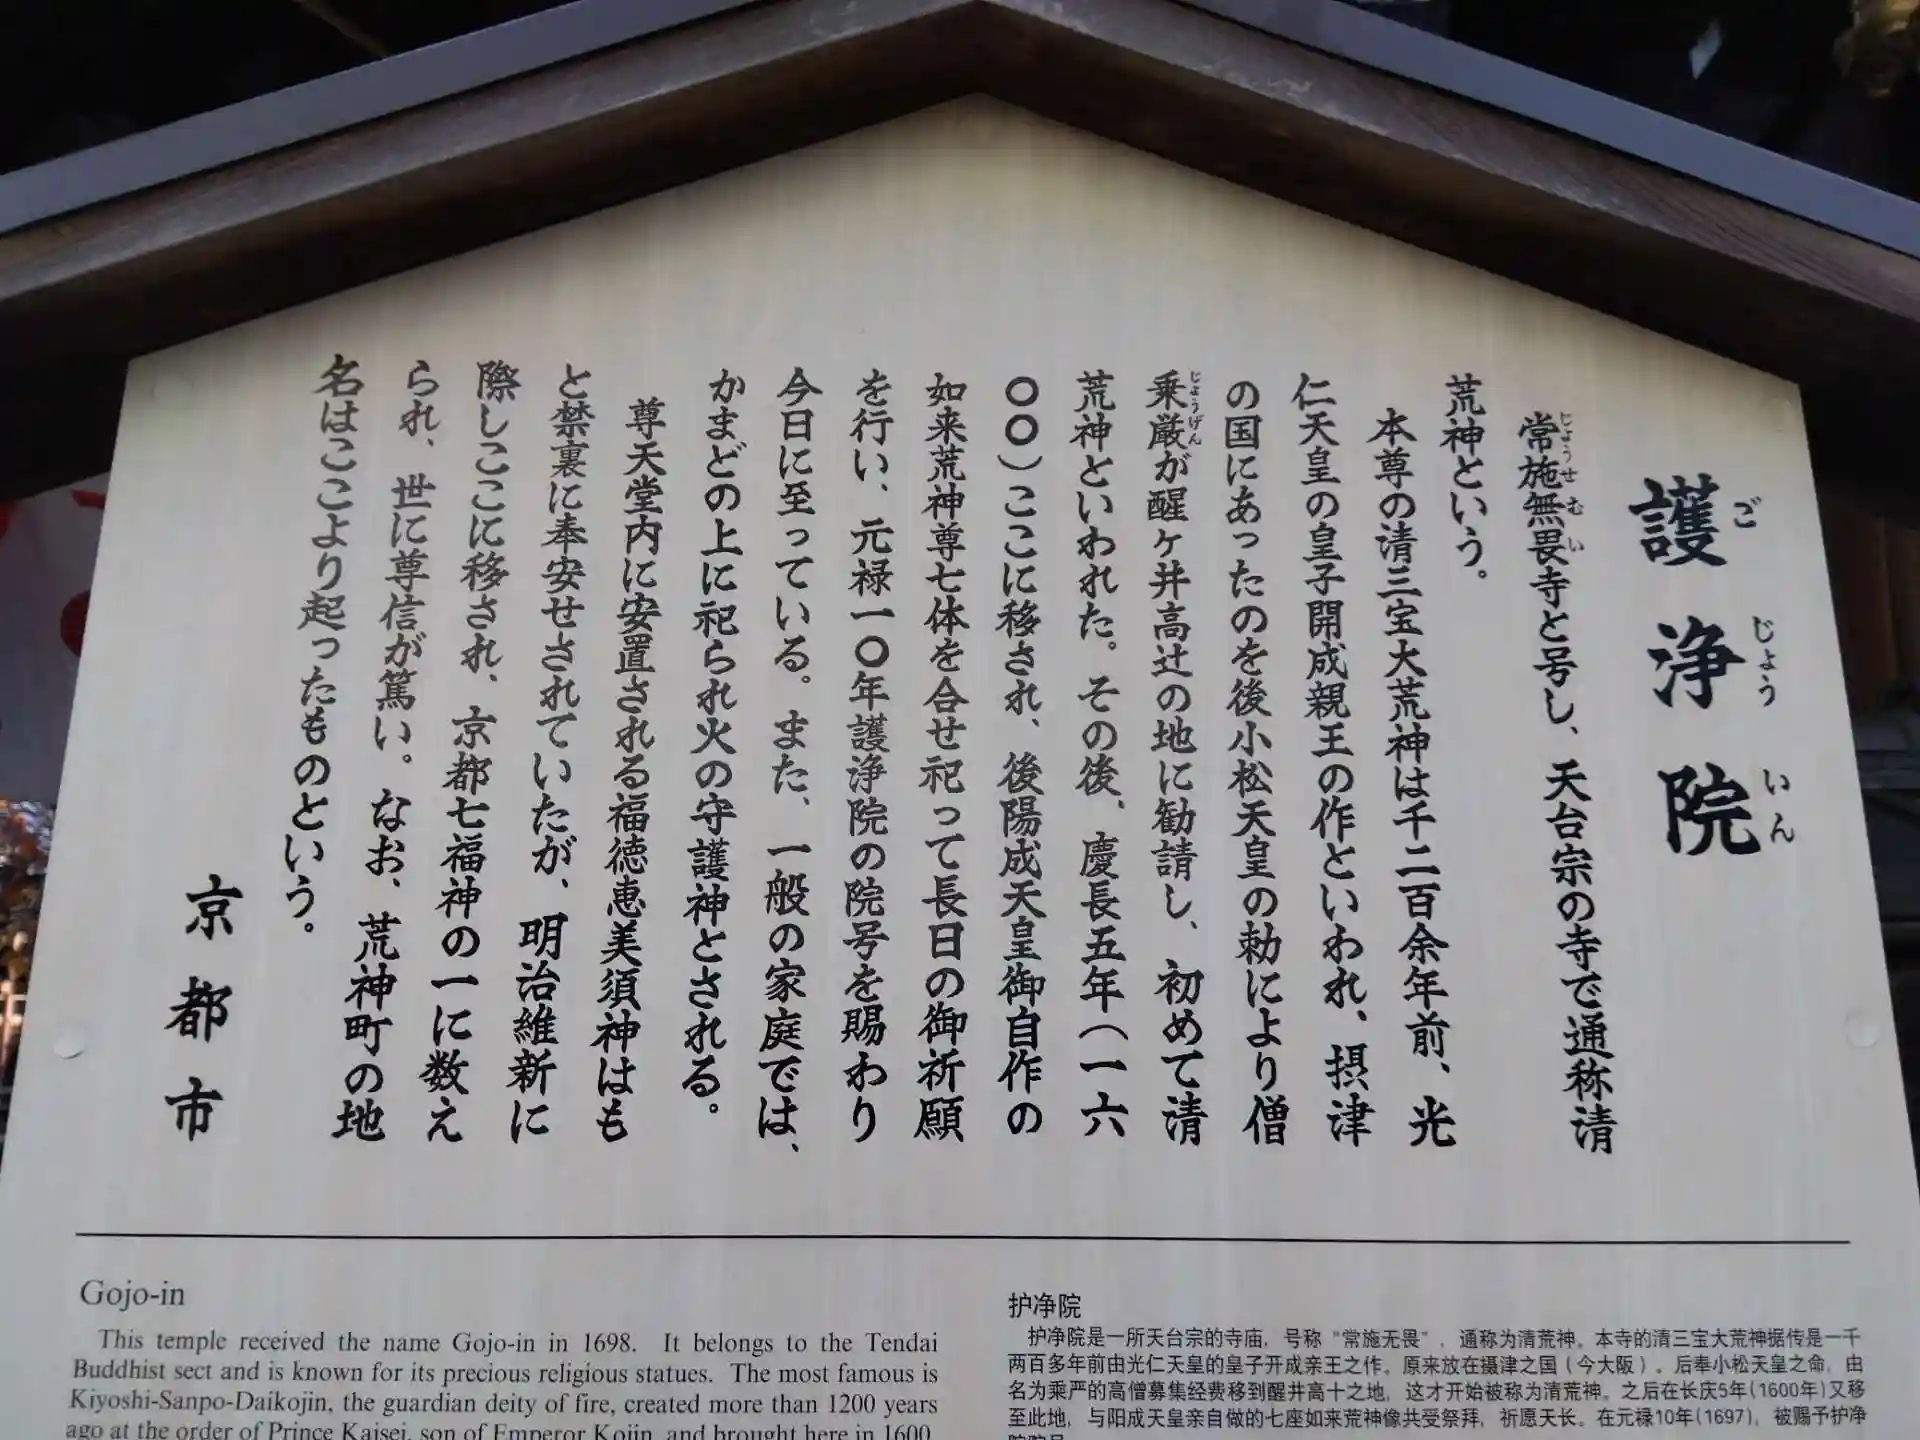 護浄院
ごじょういん
常施無畏寺と号し、天台宗の寺で通称清
じょうせむい
荒神という。
本尊の清三宝大荒神は千二百余年前、光
仁天皇の皇子開成親王の作といわれ、摂津
の国にあったのを後小松天皇の勅により僧
乗厳が醒ヶ井高辻の地に勧請し、初めて清
じょうげん
荒神といわれた。その後、慶長五年（一六
〇〇）ここに移され、後陽成天皇御自作の
如来荒神尊七体を合せ祀って長日の御祈願
を行い、元禄一〇年護浄院の院号を賜わり
今日に至っている。また、一般の家庭では、
かまどの上に祀られ火の守護神とされる。
尊天堂内に安置される福徳恵美須神はも
と禁裏に奉安せされていたが、明治維新に
際しここに移され、京都七福神の一に数え
られ、世に尊信が篤い。なお、荒神町の地
名はここより起ったものという。
京都市
Gojo-in
This temple received the name Gojo-in in 1698. It belongs to the Tendai
Buddhist sect and is known for its precious religious statues. The most famous is
Kiyoshi-Sanpo-Daikojin, the guardian deity of fire, created more than 1200 years
ago at the order of Prince Kaisei, son of Emperor Kojin, and brought here in 1600.
护净院
护净院是一所天台宗的寺庙，号称“常施无畏”，通称为清荒神。本寺的清三宝大荒神据传是一千
两百多年前由光仁天皇的皇子开成亲王之作。原来放在摄津之国（今大阪）。后奉小松天皇之命，由
名为乘严的高僧募集经费移到醒井高十之地，这才开始被称为清荒神。之后在长庆5年(1600年)又移
至此地，与阳成天皇亲自做的七座如来荒神像共受祭拜，祈愿天长。在元禄10年(1697)，被赐予护净